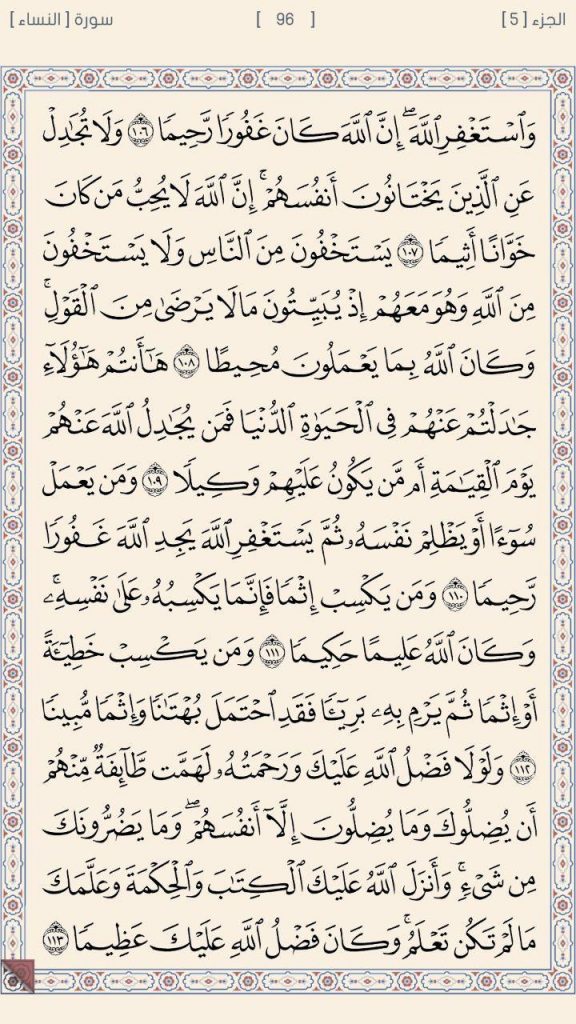 الجزء [ 5 ] [ 96 ] سورة [ النساء ]
وَٱسْتَغْفِرِ ٱللَّهَۖ إِنَّ ٱللَّهَ كَانَ غَفُورًا رَّحِيمًا ١٠٦ وَلَا تُجَٰدِلْ
عَنِ ٱلَّذِينَ يَخْتَانُونَ أَنفُسَهُمْۚ إِنَّ ٱللَّهَ لَا يُحِبُّ مَن كَانَ
خَوَّانًا أَثِيمًا ١٠٧ يَسْتَخْفُونَ مِنَ ٱلنَّاسِ وَلَا يَسْتَخْفُونَ
مِنَ ٱللَّهِ وَهُوَ مَعَهُمْ إِذْ يُبَيِّتُونَ مَا لَا يَرْضَىٰ مِنَ ٱلْقَوْلِۚ
وَكَانَ ٱللَّهُ بِمَا يَعْمَلُونَ مُحِيطًا ١٠٨ هَٰٓأَنتُمْ هَٰٓؤُلَآءِ
جَٰدَلْتُمْ عَنْهُمْ فِى ٱلْحَيَوٰةِ ٱلدُّنْيَا فَمَن يُجَٰدِلُ ٱللَّهَ عَنْهُمْ
يَوْمَ ٱلْقِيَٰمَةِ أَم مَّن يَكُونُ عَلَيْهِمْ وَكِيلًا ١٠٩ وَمَن يَعْمَلْ
سُوٓءًا أَوْ يَظْلِمْ نَفْسَهُۥ ثُمَّ يَسْتَغْفِرِ ٱللَّهَ يَجِدِ ٱللَّهَ غَفُورًا
رَّحِيمًا ١١٠ وَمَن يَكْسِبْ إِثْمًا فَإِنَّمَا يَكْسِبُهُۥ عَلَىٰ نَفْسِهِۦۚ
وَكَانَ ٱللَّهُ عَلِيمًا حَكِيمًا ١١١ وَمَن يَكْسِبْ خَطِيٓـَٔةً
أَوْ إِثْمًا ثُمَّ يَرْمِ بِهِۦ بَرِيٓـًٔا فَقَدِ ٱحْتَمَلَ بُهْتَٰنًا وَإِثْمًا مُّبِينًا
١١٢ وَلَوْلَا فَضْلُ ٱللَّهِ عَلَيْكَ وَرَحْمَتُهُۥ لَهَمَّت طَّآئِفَةٌ مِّنْهُمْ
أَن يُضِلُّوكَ وَمَا يُضِلُّونَ إِلَّآ أَنفُسَهُمْۖ وَمَا يَضُرُّونَكَ
مِن شَىْءٍۚ وَأَنزَلَ ٱللَّهُ عَلَيْكَ ٱلْكِتَٰبَ وَٱلْحِكْمَةَ وَعَلَّمَكَ
مَا لَمْ تَكُن تَعْلَمُۚ وَكَانَ فَضْلُ ٱللَّهِ عَلَيْكَ عَظِيمًا ١١٣